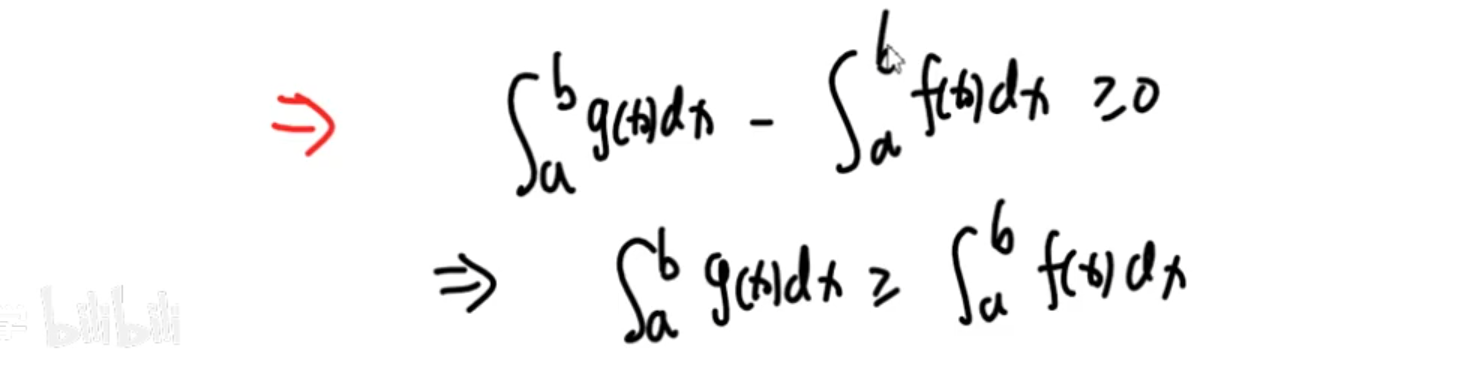 ⇒ ∫_a^b g(x)dx - ∫_a^b f(x)dx ≥0
⇒ ∫_a^b g(x)dx ≥ ∫_a^b f(x)dx
bilibili